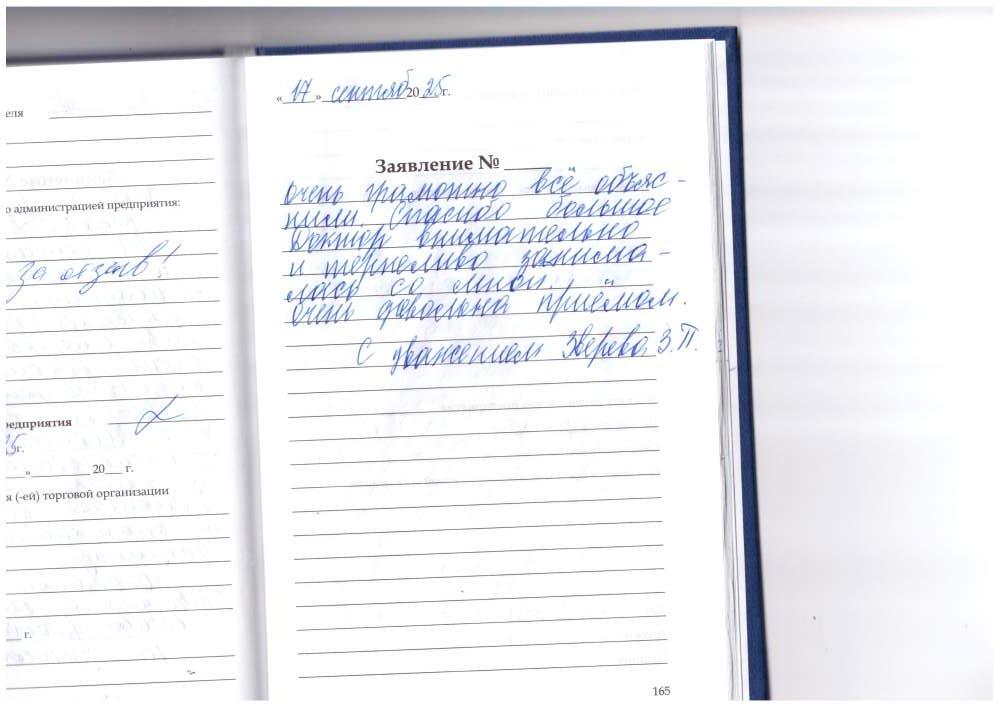 еля
о администрацией предприятия:
За отзыв!
редприятия
25г.
» 20 г.
я (-ей) торговой организации
г.
«17» сентяб 2025г.
Заявление №
Очень грамотно всё объяс-
нили. Спасибо большое
Доктор внимательно
и терпеливо занима-
лась со мной.
Очень довольна приёмом.
С уважением Зверева З.П.
165